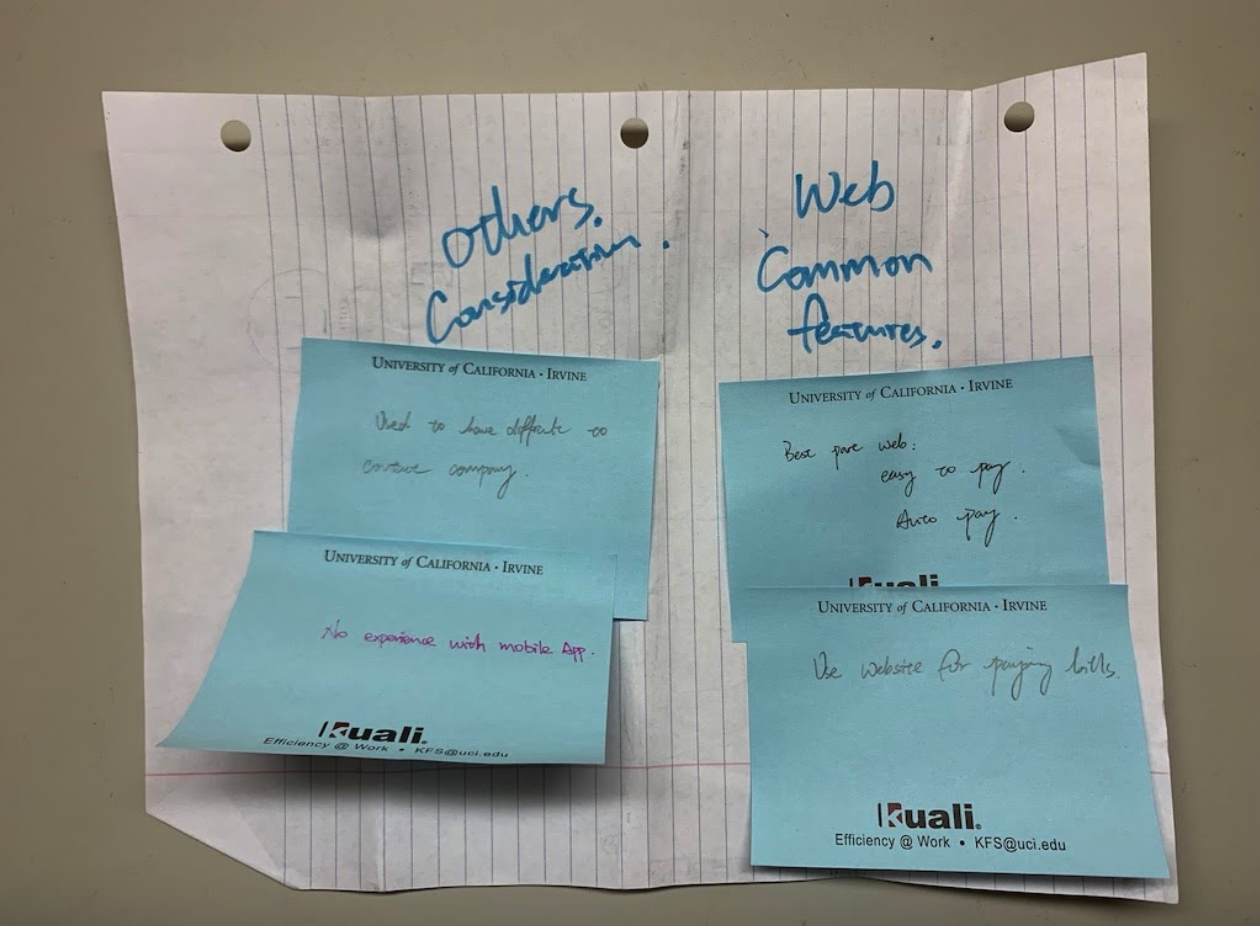 Others.
Consideration.
UNIVERSITY of CALIFORNIA · IRVINE
Used to have difficult to
contact company.
UNIVERSITY of CALIFORNIA · IRVINE
No experience with mobile App.
Kuali.
Efficiency @ Work • KFS@uci.edu
Web
Common
features.
UNIVERSITY of CALIFORNIA · IRVINE
Best part web:
easy to pay.
Auto pay.
Kuali
UNIVERSITY of CALIFORNIA · IRVINE
Use website for paying bills.
Kuali.
Efficiency @ Work • KFS@uci.edu